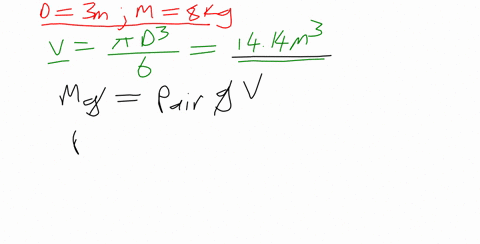 D = 3m ; M = 8kg
V = πD³/6 = 14.14m³
Mg = Pair g V